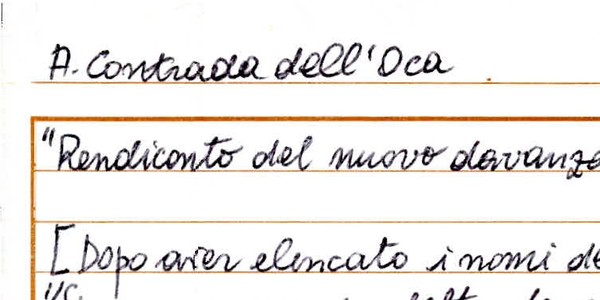 A. Contrada dell'Oca
"Rendiconto del nuovo davanza
[Dopo aver elencato i nomi de